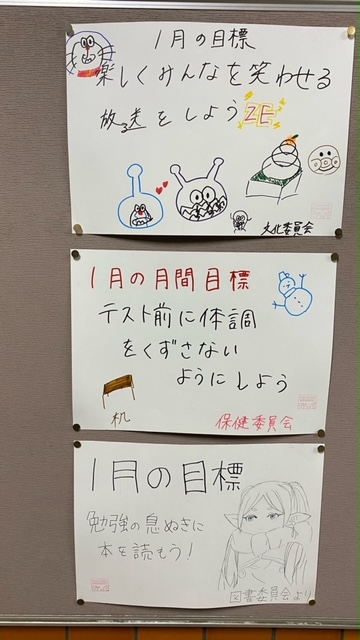 1月の目標
楽しくみんなを笑わせる
放送をしようZE
文化委員会
1月の月間目標
テスト前に体調
をくずさない
ようにしよう
机
保健委員会
1月の目標
勉強の息ぬきに
本を読もう!
図書委員会より